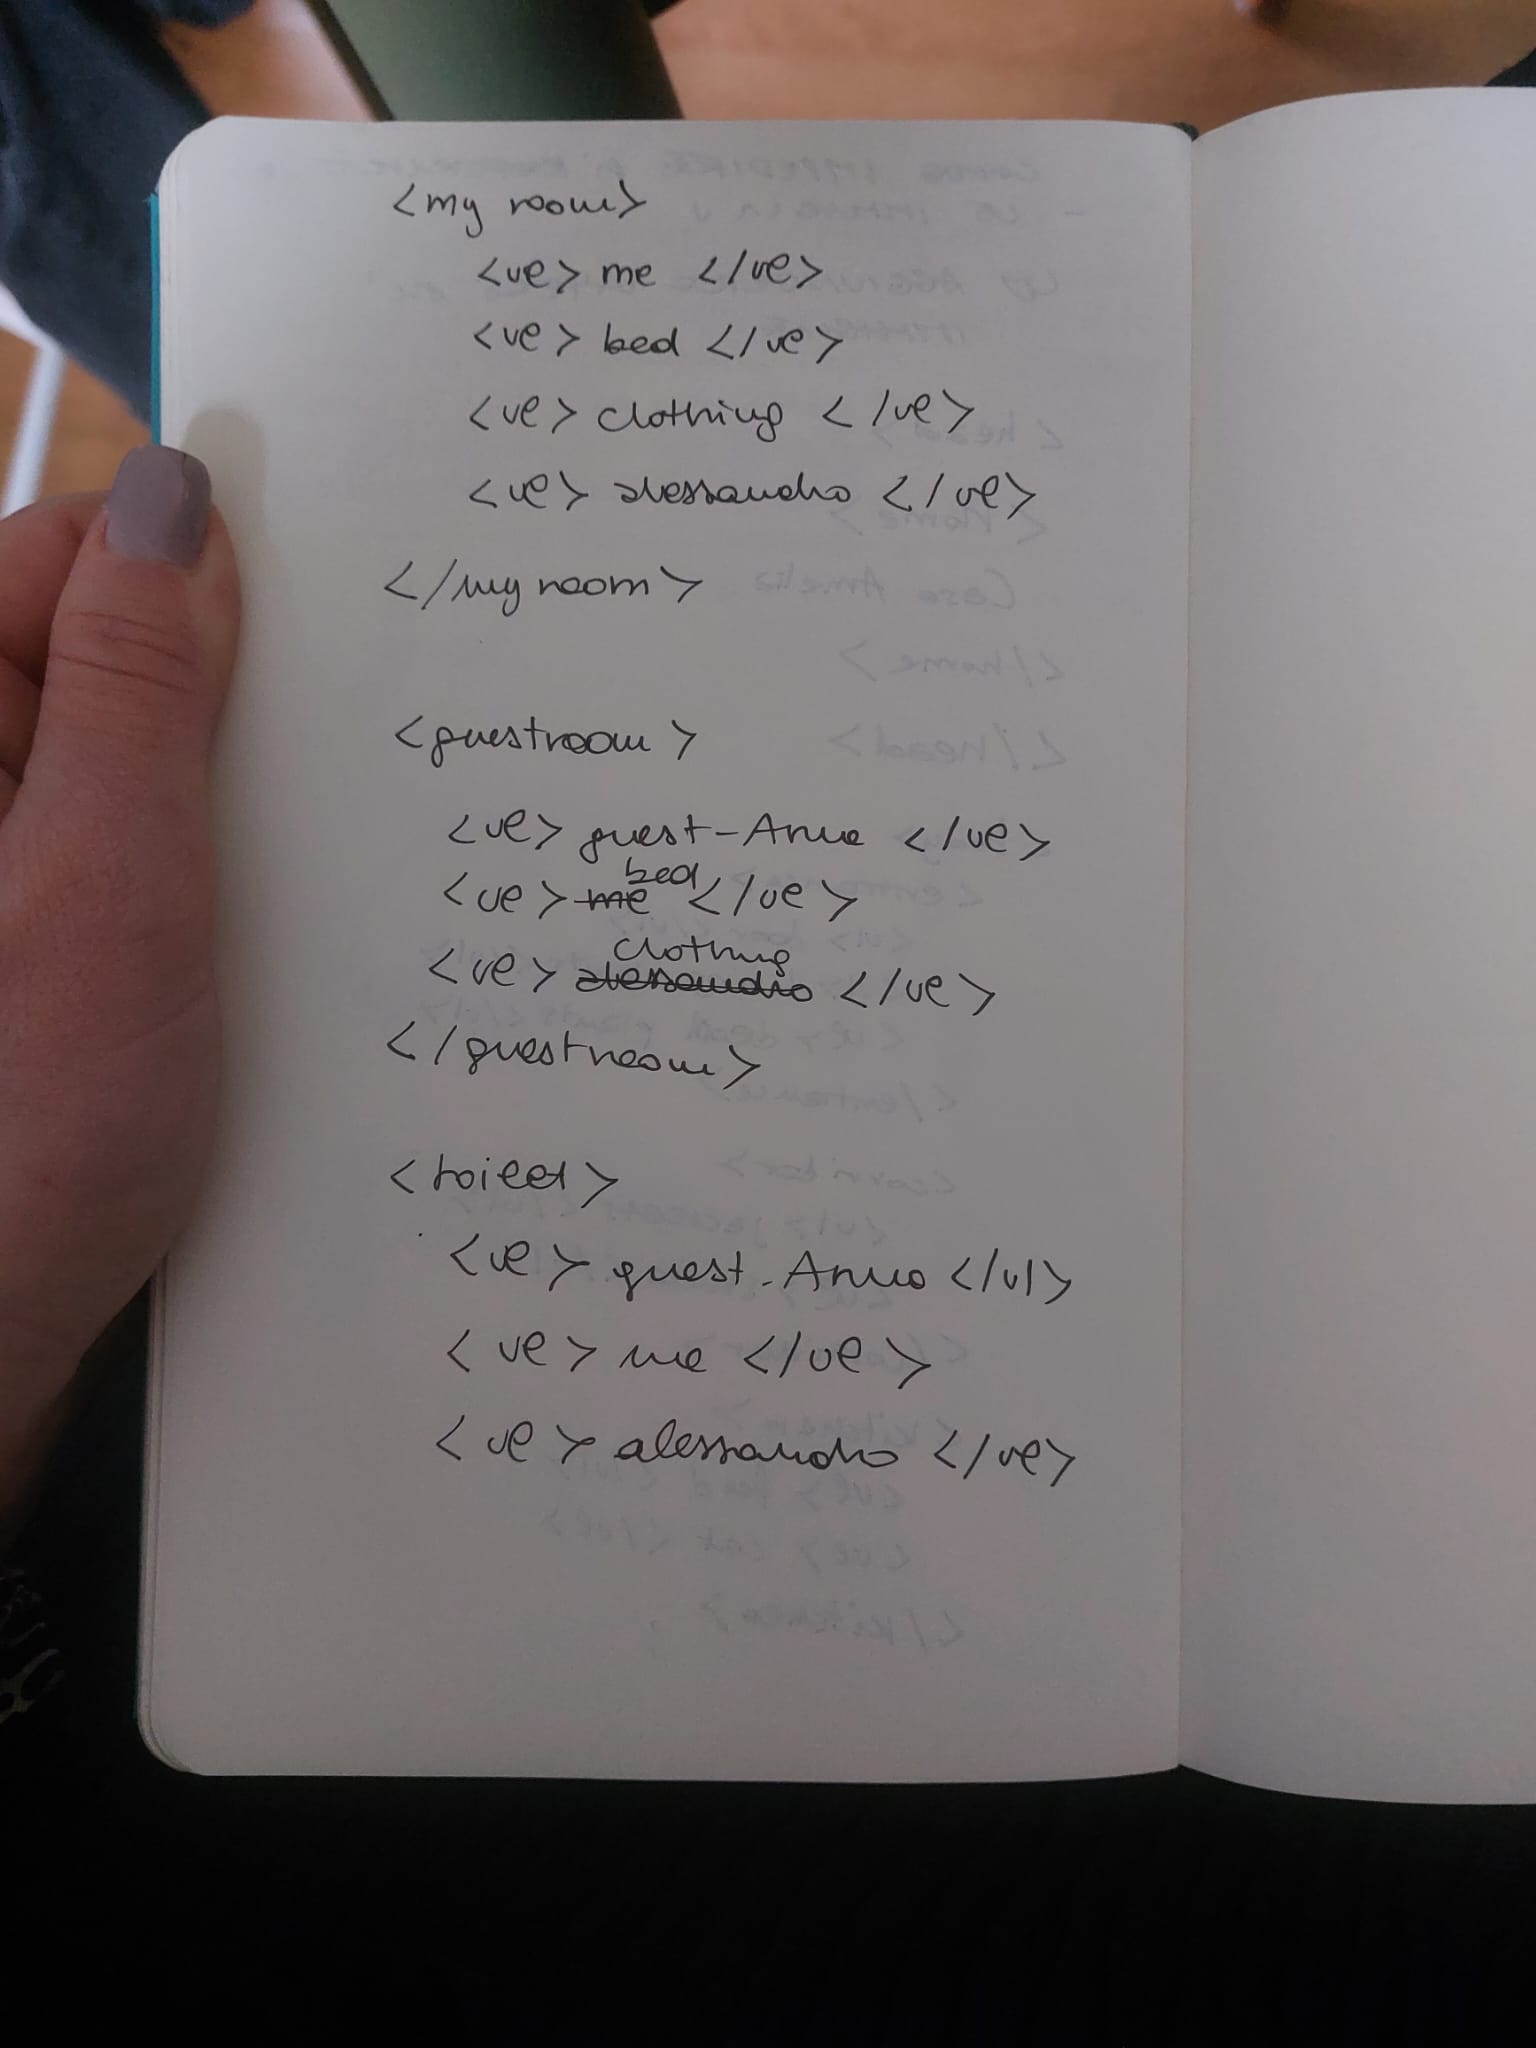 <my room>
<ul> me </ul>
<ul> bed </ul>
<ul> clothing </ul>
<ul> alessandro </ul>
</my room>
<guestroom>
<ul> guest-Anna </ul>
<ul> me bed </ul>
<ul> alessandro clothing </ul>
</guestroom>
<toilet>
<ul> guest-Anna </ul>
<ul> me </ul>
<ul> alessandro </ul>